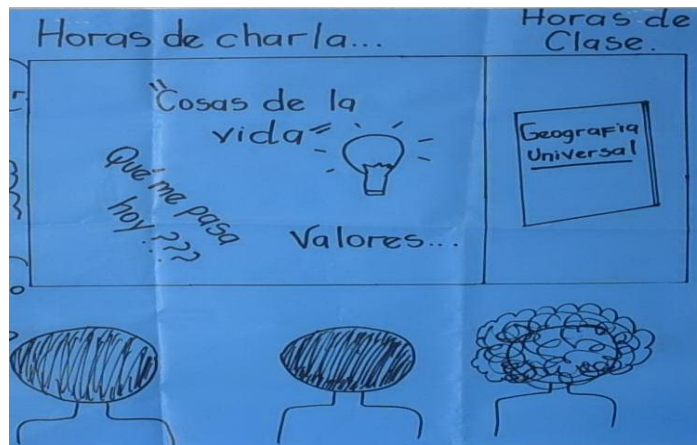 Horas de charla...
Horas de
Clase.
"Cosas de la
vida"
Qué me pasa
hoy???
Valores...
Geografia
Universal